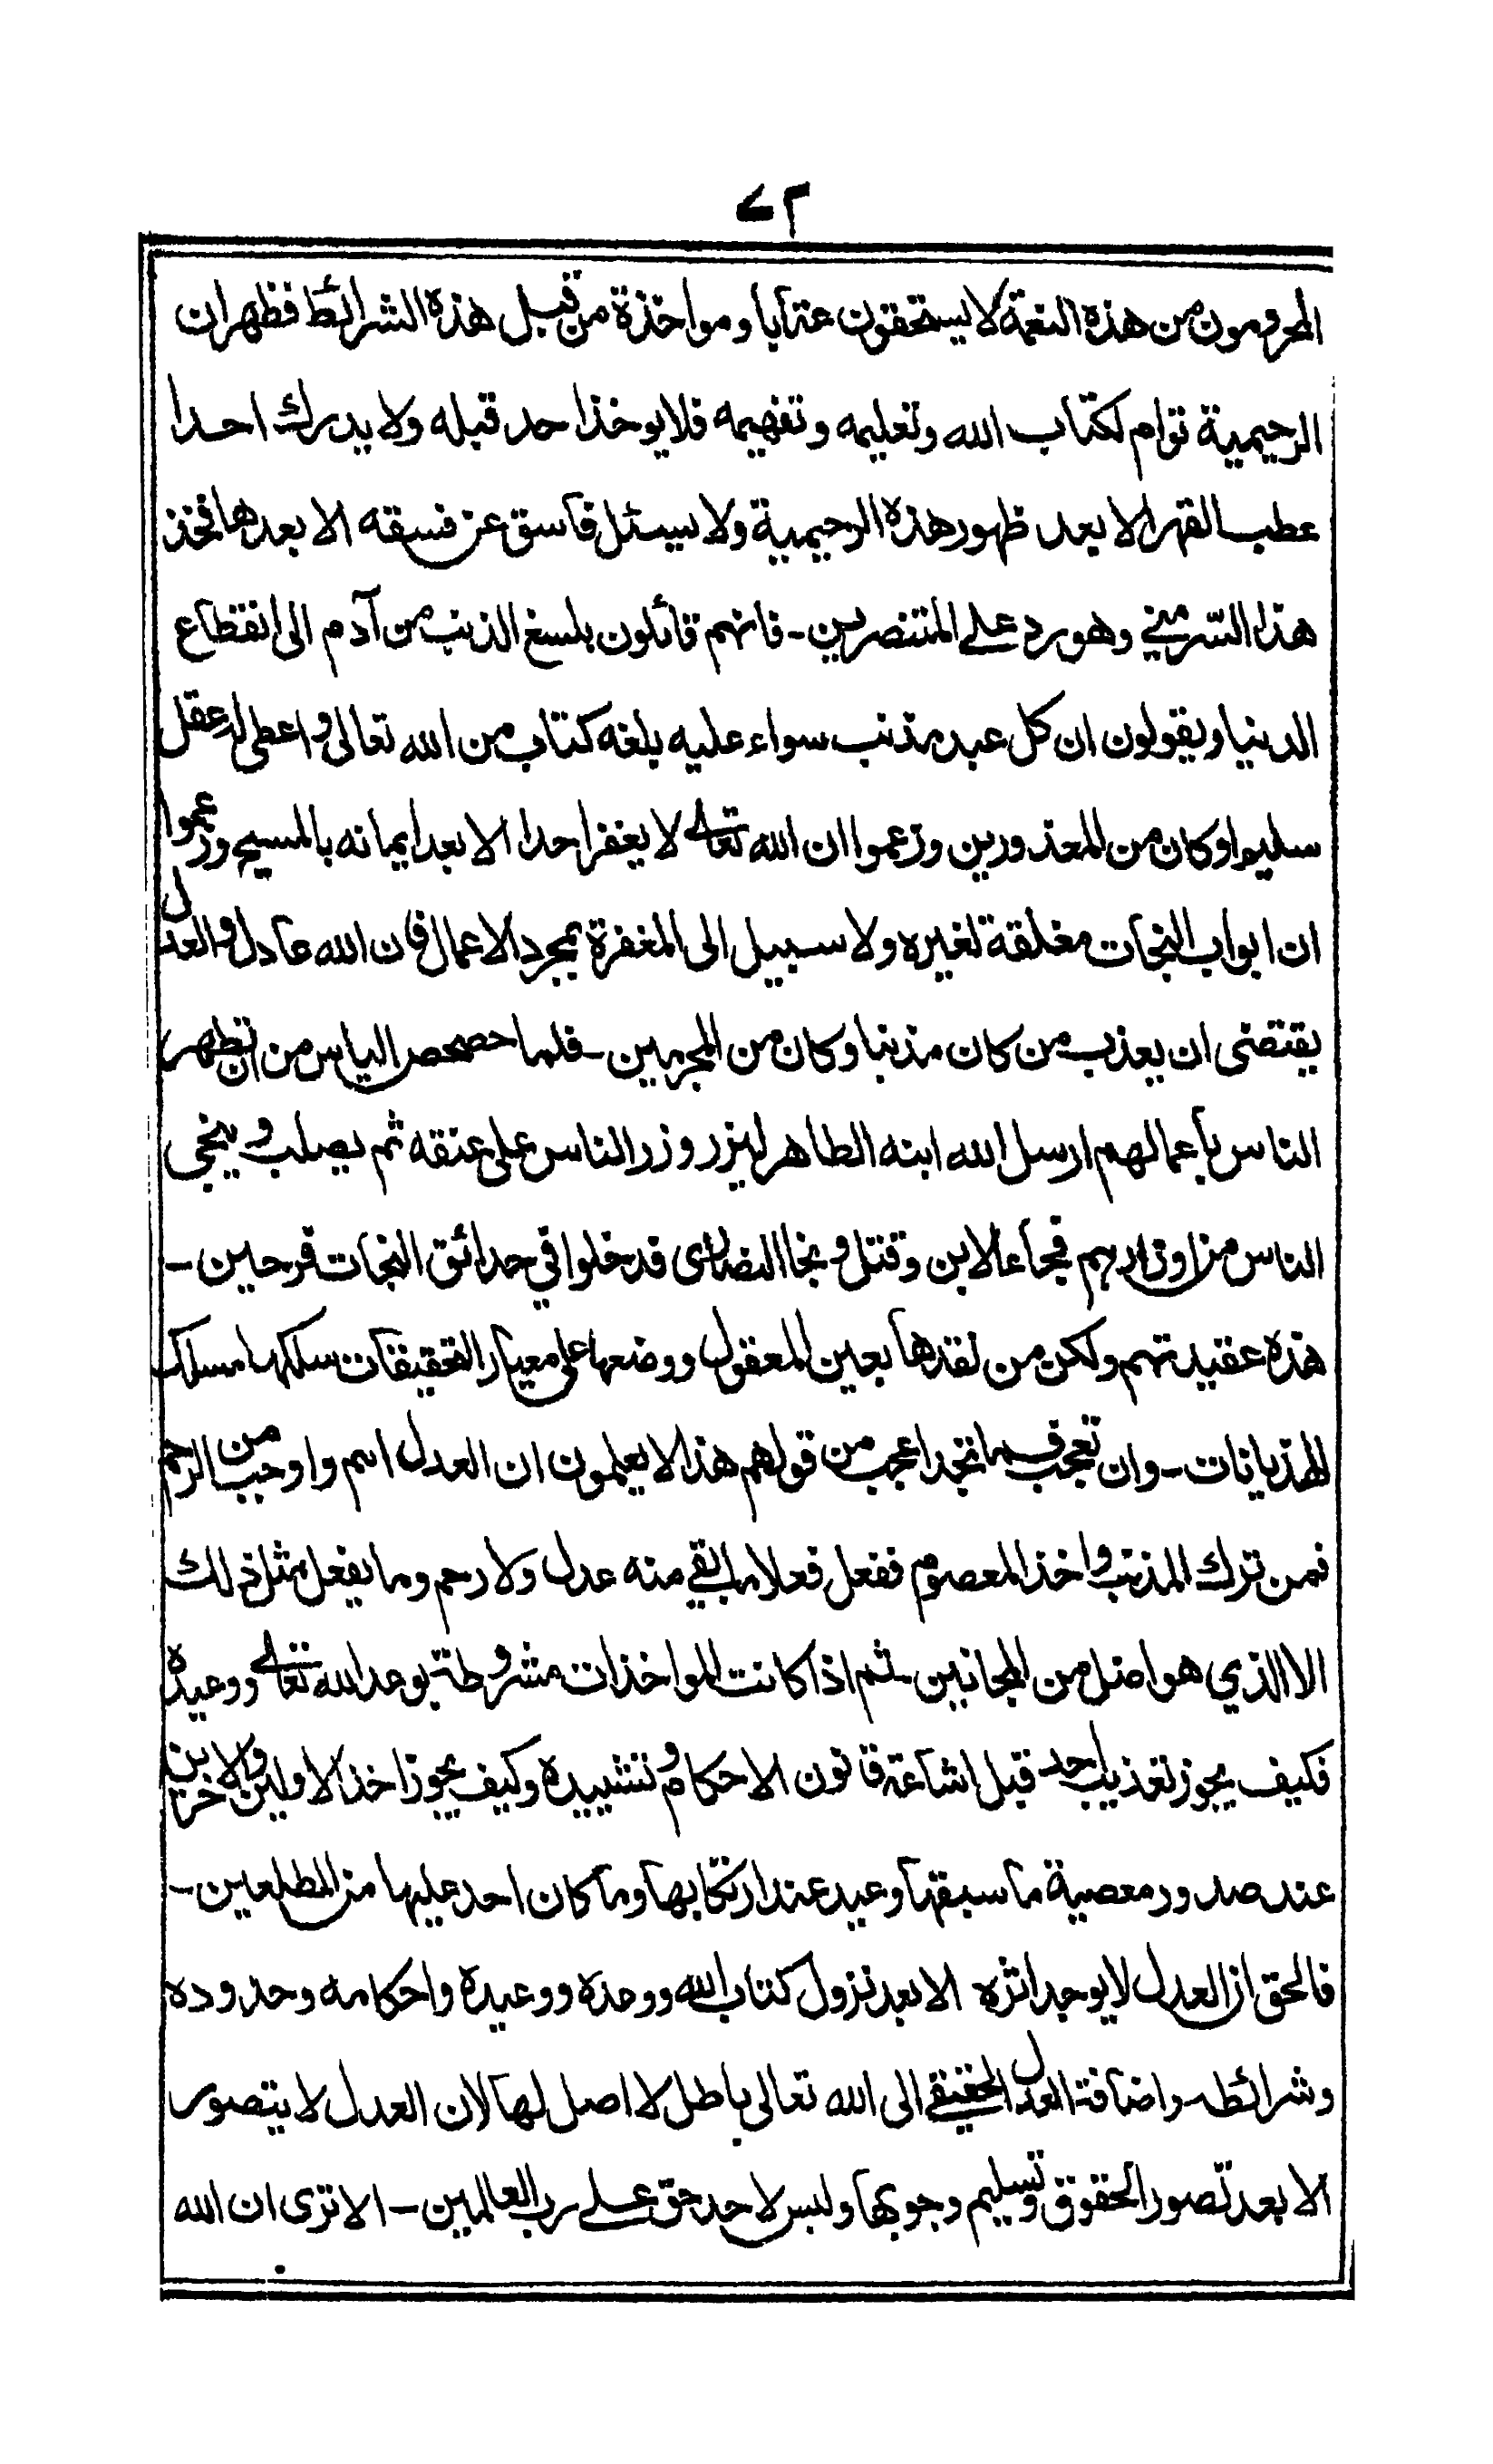 ٧٣
المحرومون من هذه النعمة لا يستحقون عتابا ومواخذة من قبل هذه الشرائط فظهر ان
الرحيمية توام لكتاب الله وتعليمه وتفهيمه فلا يوخذ احد قبله ولا يدرك احدا
عطب القهر الا بعد ظهور هذه الرحيمية ولا يسئل فاسق عن فسقه الا بعدها فخذ
هذا السّر منى وهو رد على المتنصرين - فانهم قائلون بلسغ الذنب من آدم الى انقطاع
الدنيا ويقولون ان كل عبد مذنب سواء عليه بلغه كتاب من الله تعالى واعطى له عقل
سليم او كان من المعذورين وزعموا ان الله تعالى لا يغفر احدا الا بعد ايمانه بالمسيح وزعموا
ان ابواب النجات مغلقة لغيره ولا سبيل الى المغفرة بمجرد الاعمال فان الله عادل والعدل
يقتضى ان يعذب من كان مذنبا وكان من المجرمين - فلما حصحص الياس من ان تطهر
الناس باعمالهم ارسل الله ابنه الطاهر ليزر وزر الناس على عنقه ثم يصلب وينجى
الناس من اوزارهم فجاء الابن وقتل ونجا النصارى فدخلوا في حدائق النجات فرحين -
هذه عقيدتهم ولكن من نقدها بعين المعقول ووضعها على معيار التحقيقات سلكها مسلك
الهذيانات - وان تعجب فما تجد اعجب من قولهم هذا لا يعلمون ان العدل اهم واوجب من الرحم
فمن ترك المذنب واخذ المعصوم ففعل فعلا ما بقي منه عدل ولا رحم وما يفعل مثل ذلك
الا الذي هو اضل من المجانين - ثم اذا كانت المواخذات مشروطة بوعد الله تعالى ووعيده
فكيف يجوز تعذيب احد قبل اشاعة قانون الاحكام وتشييده وكيف يجوز اخذ الاولين والاخرين
عند صدور معصية ما سبقها وعيد عند ارتكابها وما كان احد عليها من المطلعين -
فالحق ان العدل لا يوجد اثره الا بعد نزول كتاب الله ووعده ووعيده واحكامه وحدوده
وشرائطه - واضافة العدل الحقيقي الى الله تعالى باطل لا اصل لها لان العدل لا يتصور
الا بعد تصور الحقوق وتسليم وجوبها وليس لاحد حق على رب العالمين - الا ترى ان الله